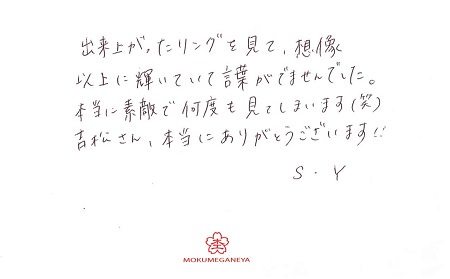 出来上がったリングを見て、想像
以上に輝いていて言葉がでませんでした。
本当に素敵で何度も見てしまいます(笑)
吉松さん、本当にありがとうございます!!
S.Y
MOKUMEGANEYA